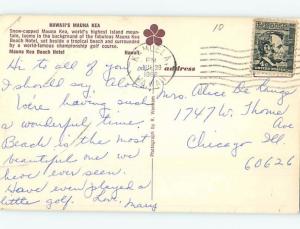 HAWAII'S MAUNA KEA
Snow-capped Mauna Kea, world's highest island moun-
tain, looms in the background of the fabulous Mauna Kea
Beach Hotel, set beside a tropical beach and surrounded
by a world-famous championship golf course.
Mauna Kea Beach Hotel Hawaii
10
PM
1968
address
Hi to all of you
I should say, "Aloha"
Were having such
a wonderful time.
Beach is the most
beautiful one we
have ever seen.
Have even played a
little golf. Love, Mary
Mrs. Alice
1747 W. Thome
Ave
Chicago Ill
60626